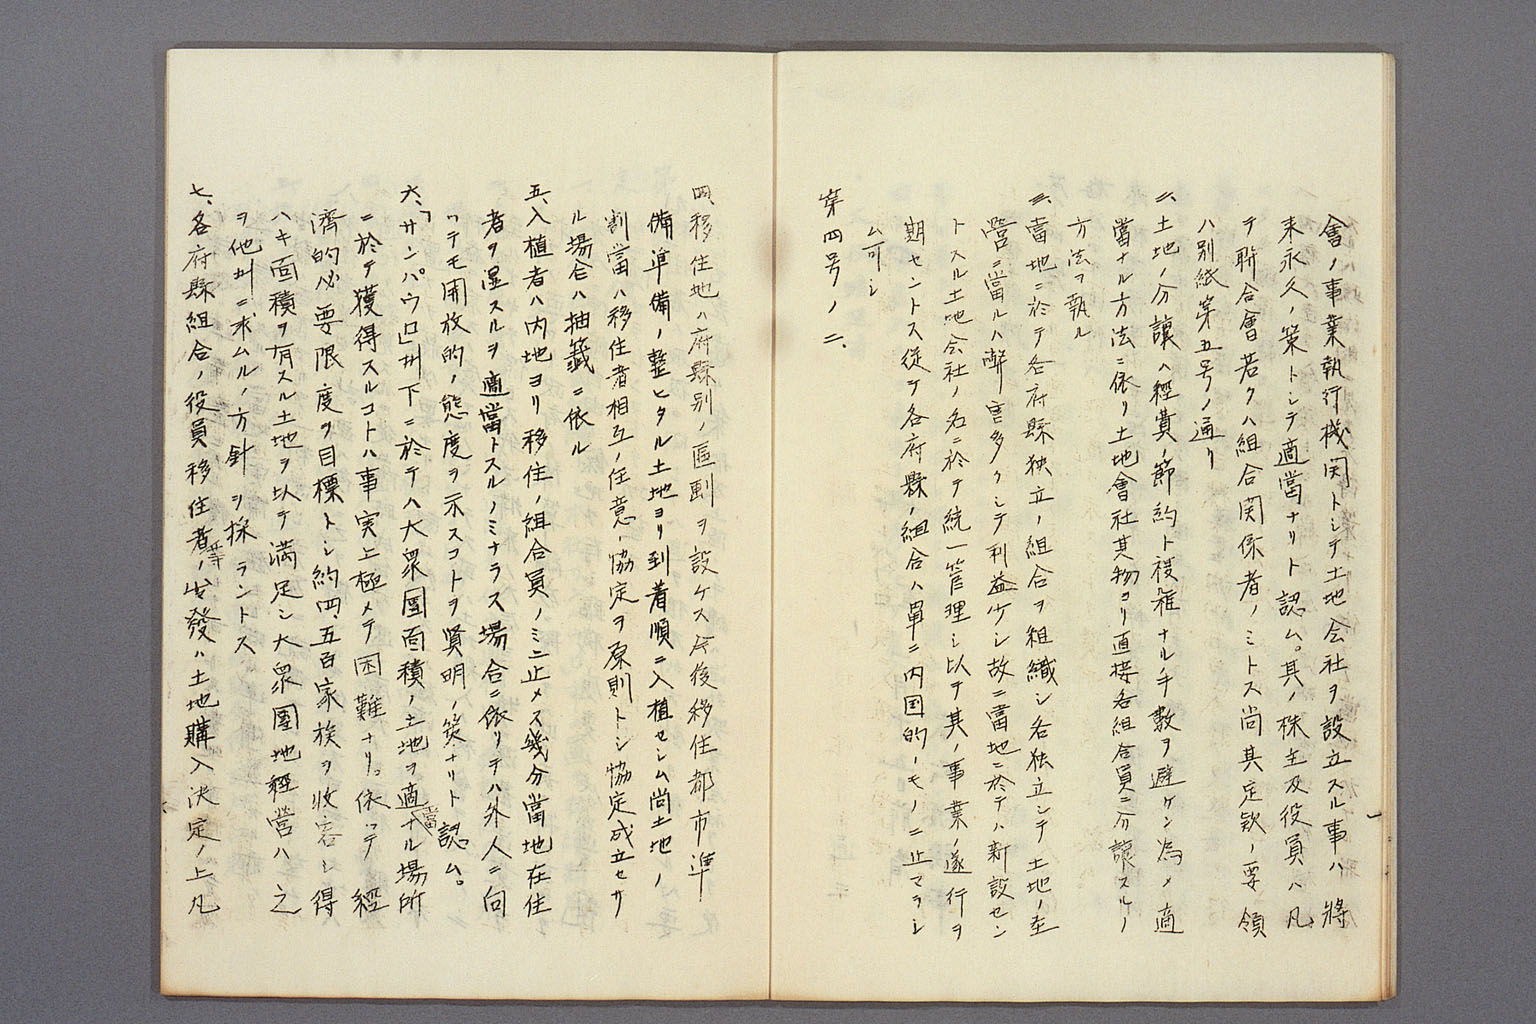 一、
會ノ事業執行機関トシテ土地会社ヲ設立スル事ハ將
来永久ノ策トシテ適當ナリト認ム。其ノ株主及役員ハ凡
テ聯合會若クハ組合関係者ノミトス尚其定款ノ要領
ハ別紙第五号ノ通リ
二、土地ノ分譲ハ經費ノ節約ト複雑ナル手數ヲ避ケン為メ適
當ナル方法ニ依リ土地會社其物ヨリ直接各組合員ニ分譲スルノ
方法ヲ執ル
三、當地ニ於テ各府縣独立ノ組合ヲ組織シ各独立シテ土地ノ至
營ニ當ルハ弊害多クシテ利益少シ故ニ當地ニ於テハ新設セン
トスル土地会社ノ名ニ於テ統一管理シ以テ其ノ事業ノ遂行ヲ
期セントス従テ各府縣ノ組合ハ單ニ内国的ノモノニ止マラシ
ム可シ
第四号ノ二、
四、移住地ハ府縣別ノ區劃ヲ設ケス今後移住都市準
備準備ノ整ヒタル土地ヨリ到着順ニ入植セシム尚土地ノ
割當ハ移住者相互ノ任意ノ協定ヲ原則トシ協定成立セサ
ル場合ハ抽籤ニ依ル
五、入植者ハ内地ヨリ移住ノ組合員ノミニ止メス幾分當地在住
者ヲ混スルヲ適當トスルノミナラス場合ニ依リテハ外人ニ向
ツテモ開放的ノ態度ヲ示スコトヲ賢明ノ策ナリト認ム。
六、「サンパウロ」州下ニ於テハ大衆團面積ノ土地ヲ適當ナル場所
ニ於テ獲得スルコトハ事実上極メテ困難ナリ。依ツテ經
濟的必要限度ヲ目標トシ約四、五百家族ヲ收容シ得
ハキ面積ヲ有スル土地ヲ以テ満足シ大衆團地經営ハ之
ヲ他州ニ求ムルノ方針ヲ採ラントス
七、各府縣組合ノ役員移住者等ノ出発ハ土地購入決定ノ上凡